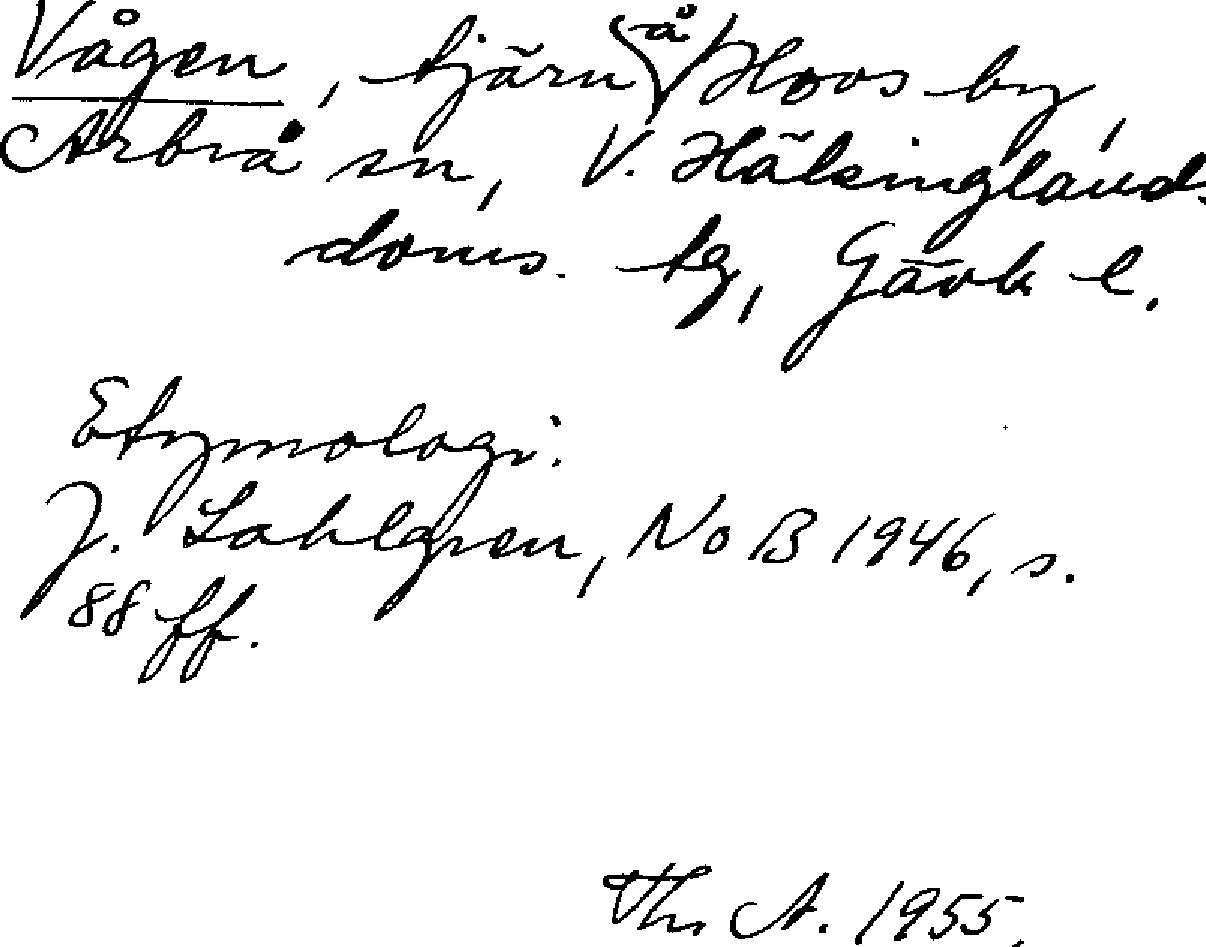 Vågen, tjärn å Hoos by,
Arbrå sn, V. Hälsinglands
doms. tg, Gävle l.
Etymologi:
J. Sahlgren, NoB 1946, s.
88 ff.
Th. A. 1955.